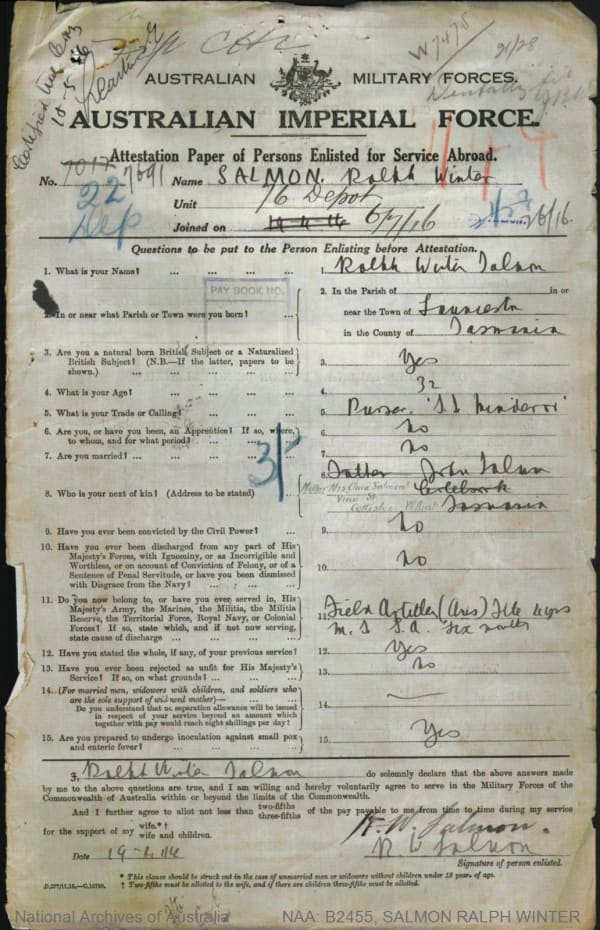 Certified true Copy
18.5.16
W7478
21/28
AUSTRALIAN MILITARY FORCES.
AUSTRALIAN IMPERIAL FORCE.
Attestation Paper of Persons Enlisted for Service Abroad.
No. 7017 7691 Name SALMON. Ralph Winter
22 Dep
Unit 76 Depot
Joined on 19.4.16 6/7/16
Questions to be put to the Person Enlisting before Attestation.
1. What is your Name? ... ... ... ... 1. Ralph Winter Salmon
PAY BOOK NO.
2. In or near what Parish or Town were you born? ...
2. In the Parish of in or
near the Town of Launceston
in the County of Tasmania
3. Are you a natural born British Subject or a Naturalized
British Subject? (N.B.—If the latter, papers to be
shown.) ... ... ... ... ... 3. Yes
4. What is your Age? ... ... ... ... 4. 32
5. What is your Trade or Calling? ... ... ... 5. Purser
6. Are you, or have you been, an Apprentice? If so, where,
to whom, and for what period? ... ... ... 6. No
7. Are you married? ... ... ... ... 7. No
8. Who is your next of kin? (Address to be stated) ...
8. Father John Salmon
Mother Mrs Clara Salmon
View St
Tasmania
9. Have you ever been convicted by the Civil Power? ... 9. No
10. Have you ever been discharged from any part of His
Majesty's Forces, with Ignominy, or as Incorrigible and
Worthless, or on account of Conviction of Felony, or of a
Sentence of Penal Servitude, or have you been dismissed
with Disgrace from the Navy? ... ... ... 10. No
11. Do you now belong to, or have you ever served in, His
Majesty's Army, the Marines, the Militia, the Militia
Reserve, the Territorial Force, Royal Navy, or Colonial
Forces? If so, state which, and if not now serving,
state cause of discharge ... ... ... ...
11. Field Artillery
Six months
12. Have you stated the whole, if any, of your previous service? 12. Yes
13. Have you ever been rejected as unfit for His Majesty's
Service? If so, on what grounds? ... ... ... 13. No
14. (For married men, widowers with children, and soldiers who
are the sole support of widowed mother)—
Do you understand that no separation allowance will be issued
in respect of your service beyond an amount which
together with pay would reach eight shillings per day? 14. —
15. Are you prepared to undergo inoculation against small pox
and enteric fever? ... ... ... ... 15. Yes
I, Ralph Winter Salmon do solemnly declare that the above answers made
by me to the above questions are true, and I am willing and hereby voluntarily agree to serve in the Military Forces of the
Commonwealth of Australia within or beyond the limits of the Commonwealth.
And I further agree to allot not less than two-fifths three-fifths of the pay payable to me from time to time during my service
for the support of my wife.*† wife and children.
R. W. Salmon.
R W Salmon
Date 19-4-16
Signature of person enlisted.
* This clause should be struck out in the case of unmarried men or widowers without children under 18 years of age.
† Two-fifths must be allotted to the wife, and if there are children three-fifths must be allotted.
D.277/11.15.—C.12750.
National Archives of Australia NAA: B2455, SALMON RALPH WINTER